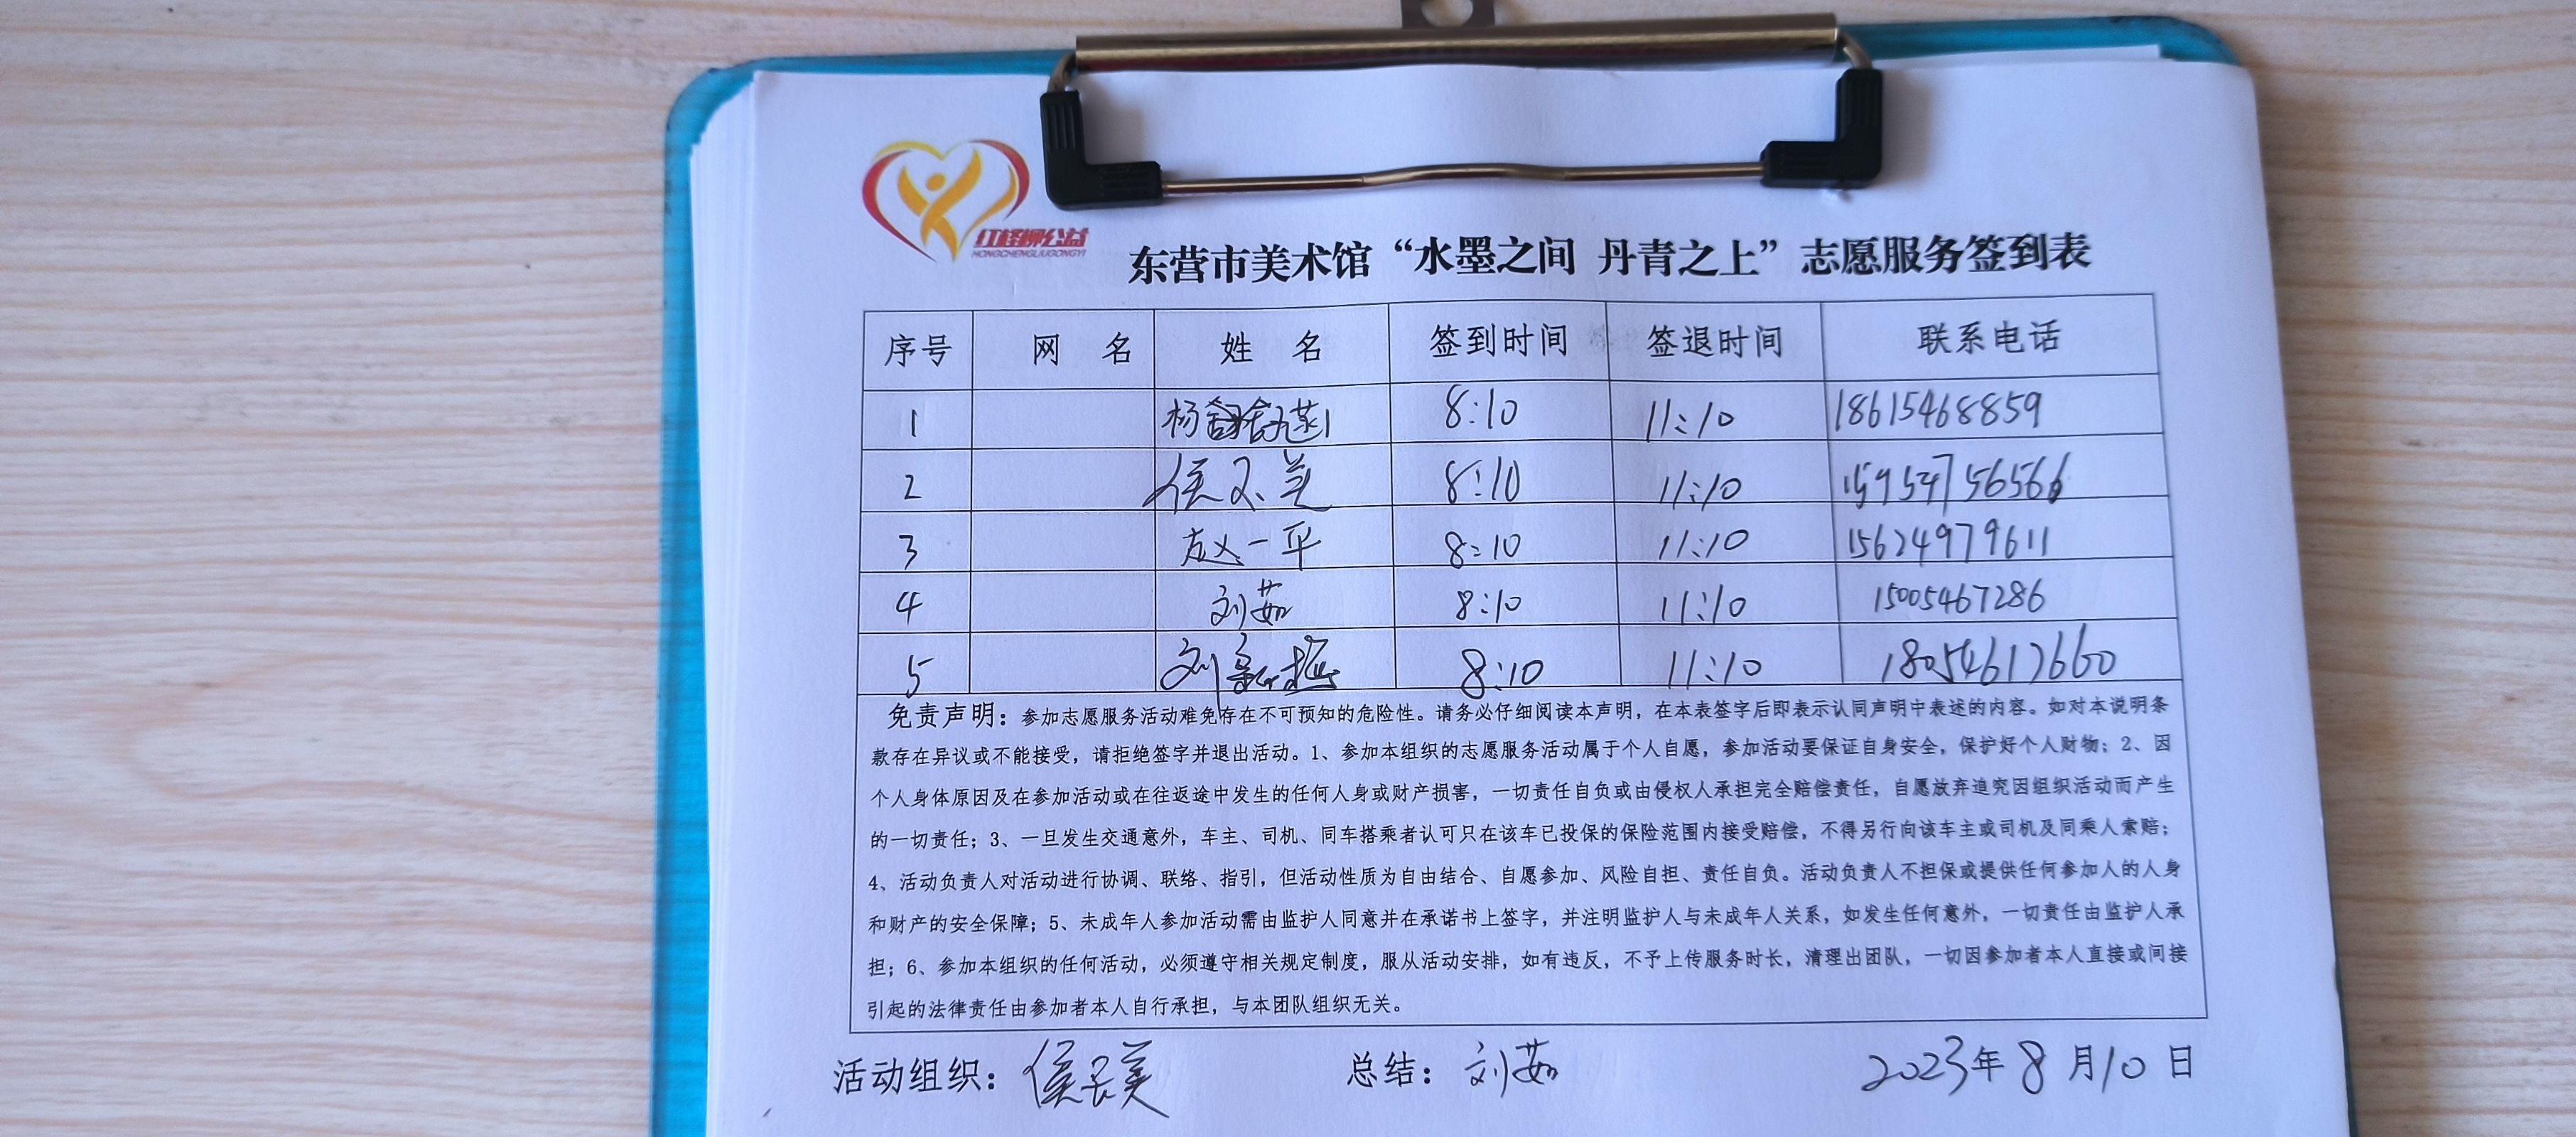 红柽柳公益
HONGCHENGLIUGONGYI
东营市美术馆“水墨之间 丹青之上”志愿服务签到表
序号 网 名 姓 名 签到时间 签退时间 联系电话
1 杨 8:10 11:10 18615468859
2 侯 8:10 11:10 15954756566
3 赵一平 8:10 11:10 15624979611
4 刘茹 8:10 11:10 15005467286
5 刘 8:10 11:10 18054617660
免责声明：参加志愿服务活动难免存在不可预知的危险性。请务必仔细阅读本声明，在本表签字后即表示认同声明中表述的内容。如对本说明条
款存在异议或不能接受，请拒绝签字并退出活动。1、参加本组织的志愿服务活动属于个人自愿，参加活动要保证自身安全，保护好个人财物；2、因
个人身体原因及在参加活动或在往返途中发生的任何人身或财产损害，一切责任自负或由侵权人承担完全赔偿责任，自愿放弃追究因组织活动而产生
的一切责任；3、一旦发生交通意外，车主、司机、同车搭乘者认可只在该车已投保的保险范围内接受赔偿，不得另行向该车主或司机及同乘人索赔；
4、活动负责人对活动进行协调、联络、指引，但活动性质为自由结合、自愿参加、风险自担、责任自负。活动负责人不担保或提供任何参加人的人身
和财产的安全保障；5、未成年人参加活动需由监护人同意并在承诺书上签字，并注明监护人与未成年人关系，如发生任何意外，一切责任由监护人承
担；6、参加本组织的任何活动，必须遵守相关规定制度，服从活动安排，如有违反，不予上传服务时长，清理出团队，一切因参加者本人直接或间接
引起的法律责任由参加者本人自行承担，与本团队组织无关。
活动组织：侯 美 总结：刘茹 2023年8月10日